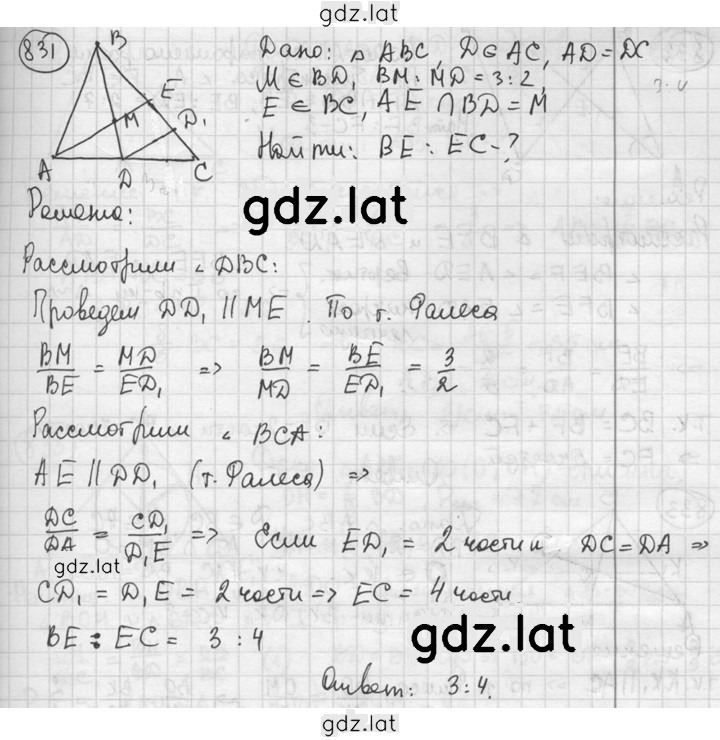 gdz.lat
831
B
E
M
D₁
A
D
C
Дано: △ ABC, D∈AC, AD=DC
M∈BD, BM:MD=3:2,
E∈BC, AE∩BD=M
Найти: BE:EC-?
Решение:
gdz.lat
Рассмотрим ∠DBC:
Проведем DD₁ || ME. По т. Фалеса
BM/BE = MD/ED₁ => BM/MD = BE/ED₁ = 3/2
Рассмотрим ∠BCA:
AE || DD₁ (т. Фалеса) =>
DC/DA = CD₁/D₁E => Если ED₁ = 2 части и DC=DA =>
gdz.lat
CD₁ = D₁E = 2 части => EC = 4 части.
BE : EC = 3 : 4
gdz.lat
Ответ: 3:4.
gdz.lat